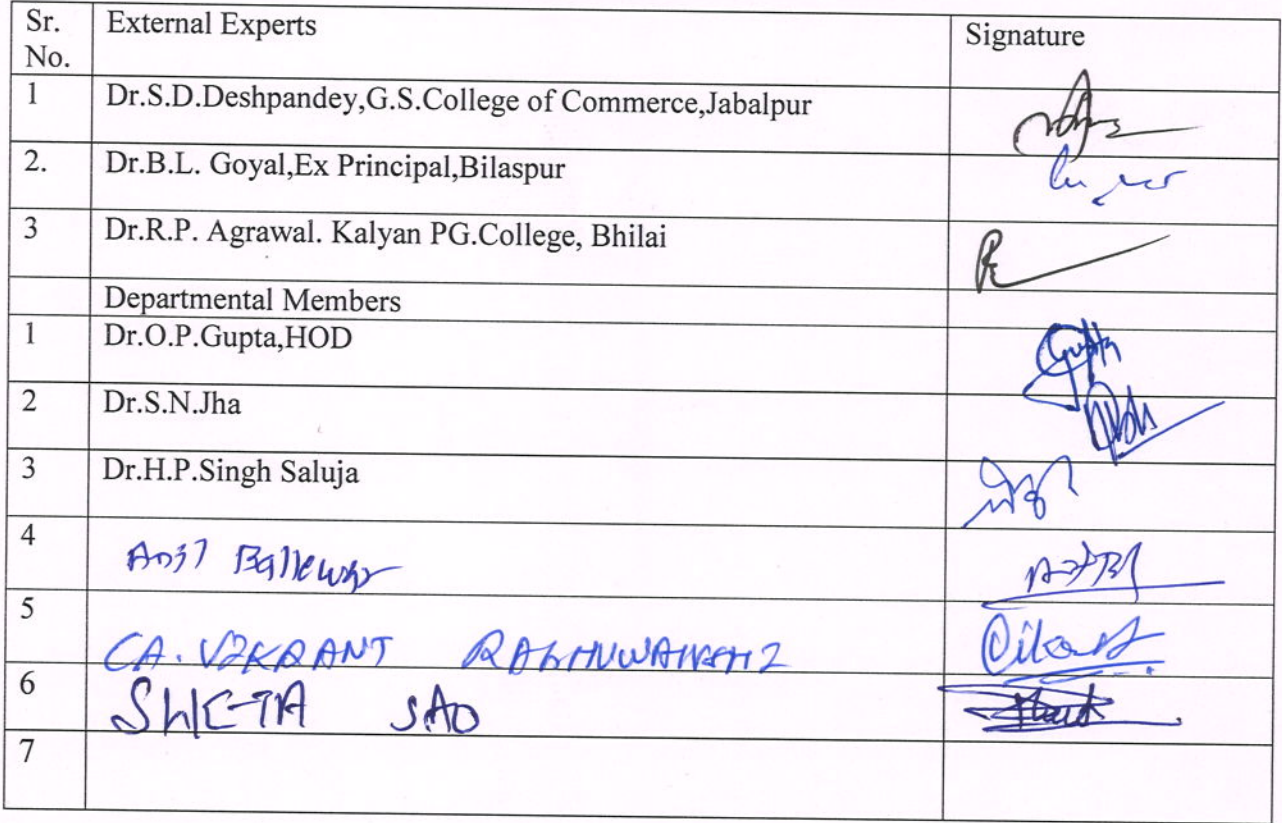 Sr. No. External Experts Signature
1 Dr.S.D.Deshpandey,G.S.College of Commerce,Jabalpur
2. Dr.B.L. Goyal,Ex Principal,Bilaspur
3 Dr.R.P. Agrawal. Kalyan PG.College, Bhilai
Departmental Members
1 Dr.O.P.Gupta,HOD Gupta
2 Dr.S.N.Jha
3 Dr.H.P.Singh Saluja
4
5 CA. VIKRANT RAGHUWANSHI
6 SHWETA SAO
7